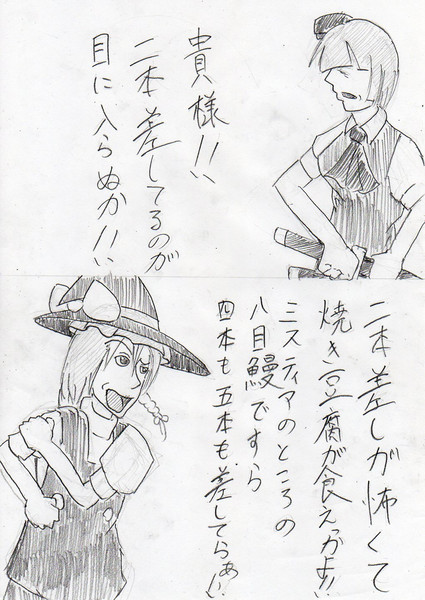 貴様!!
二本差してるのが
目に入らぬか!!
二本差しが怖くて
焼き豆腐が食えっかよ!!
ミスティアのところの
八目鰻ですら
四本も五本も差してらぁ!!